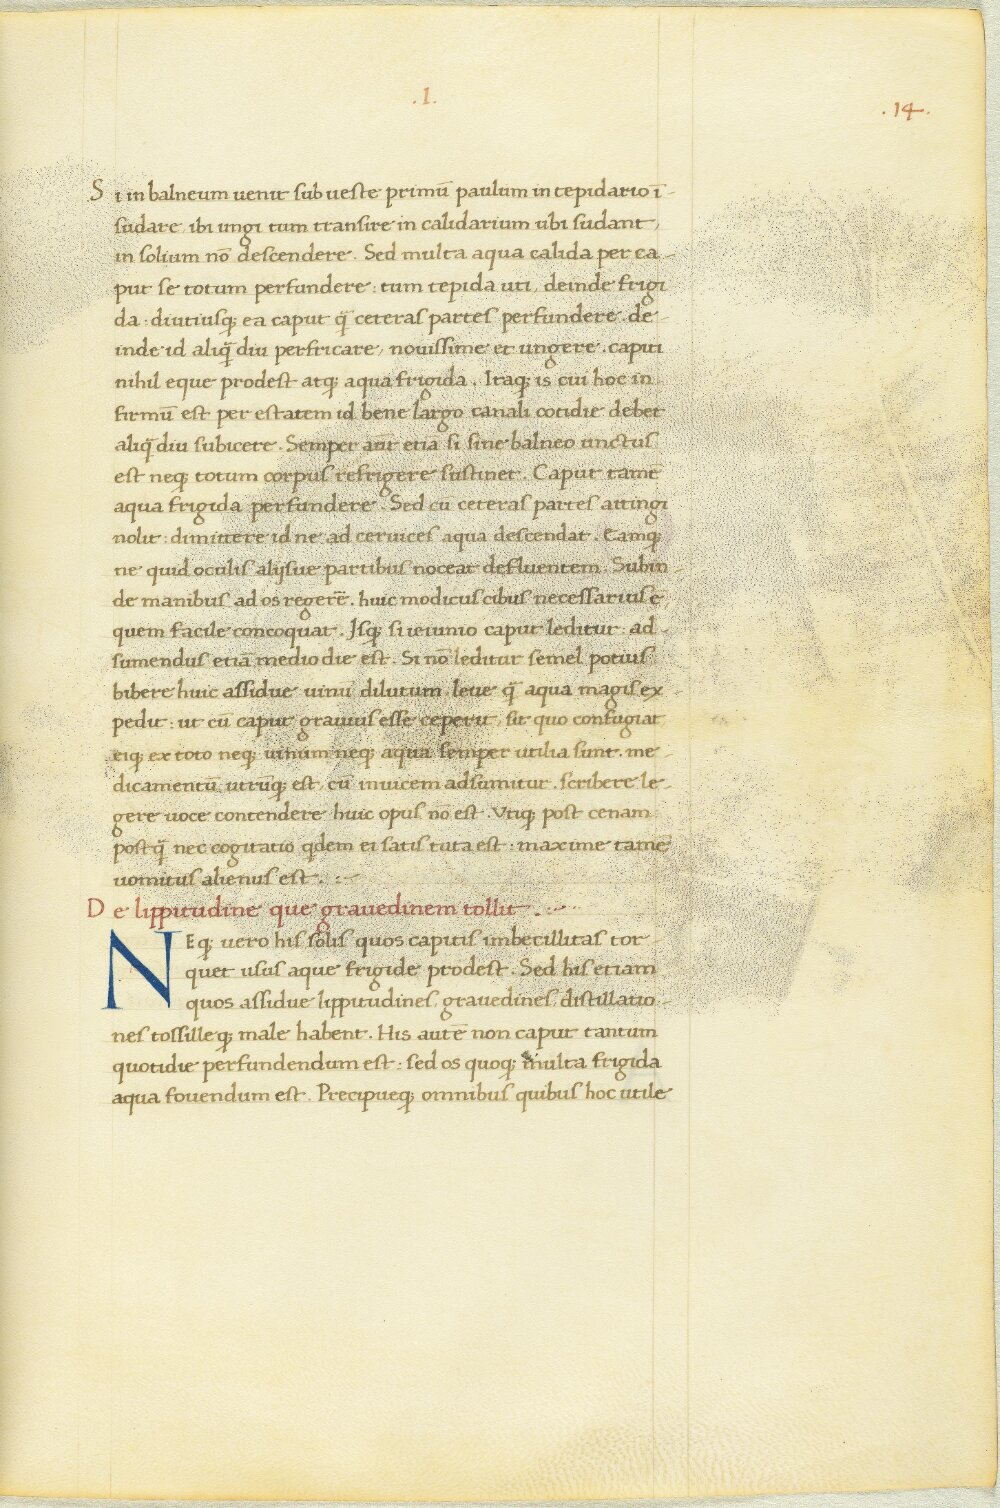 .I.
.14.
Si in balneum uenit sub ueste primũ paulum in tepidario ĩ-
sudare, ibi ungi tum transire in calidarium ubi sudant,
in solium nõ descendere. Sed multa aqua calida per ca-
put se totum perfundere: tum tepida uti, deinde frigi
da: diutiusq; ea caput q̃ ceteras partes perfundere. de-
inde id aliq̃ diu perfricare, nouissime et ungere. capiti
nihil eque prodest atq; aqua frigida. Itaq; is cui hoc in
firmũ est per estatem id bene largo canali cotidie debet
aliq̃diu subicere. Semper aũt etiã si sine balneo unctus
est neq; totum corpus refrigere sustinet. Caput tamẽ
aqua frigida perfundere. Sed cũ ceteras partes attingi
nolit: dimittere id ne ad ceruices aqua descendat. Eamq;
ne quid oculis alijsue partibus noceat defluentem. Subin-
de manibus ad os regerẽ. huic modicus cibus necessarius ẽ,
quem facile concoquat. Isq; si ieiunio caput leditur: ad-
sumendus etiã medio die est. Si nõ leditur semel potius
bibere huic assidue uinũ dilutum, leue q̃ aqua magis ex-
pedit: ut cũ caput grauius esse ceperit, sit quo confugiat
eiq; ex toto neq; uinum neq; aqua semper utilia sunt. me-
dicamentũ utrũq; est, cũ inuicem adsumitur. scribere le-
gere uoce contendere huic opus nõ est. Vtiq; post cenam
postq̃ nec cogitatio q̇dem ei satis tuta est: maxime tamẽ
uomitus alienus est.
De lippitudine que grauedinem tollit.
NEq; uero his solis quos capitis imbecillitas tor-
quet usus aque frigide prodest. Sed his etiam
quos assidue lippitudines, grauedines, distillatio-
nes tossilleq; male habent. His autẽ non caput tantum
quotidie perfundendum est: sed os quoq; multa frigida
aqua fouendum est. Precipueq; omnibus quibus hoc utile